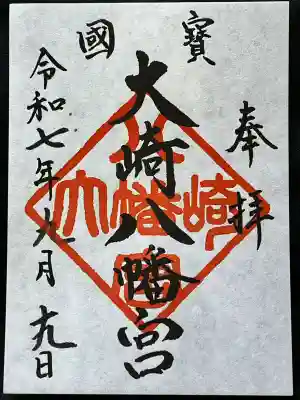 奉拝
國寳
大崎八幡宮
令和七年九月十九日